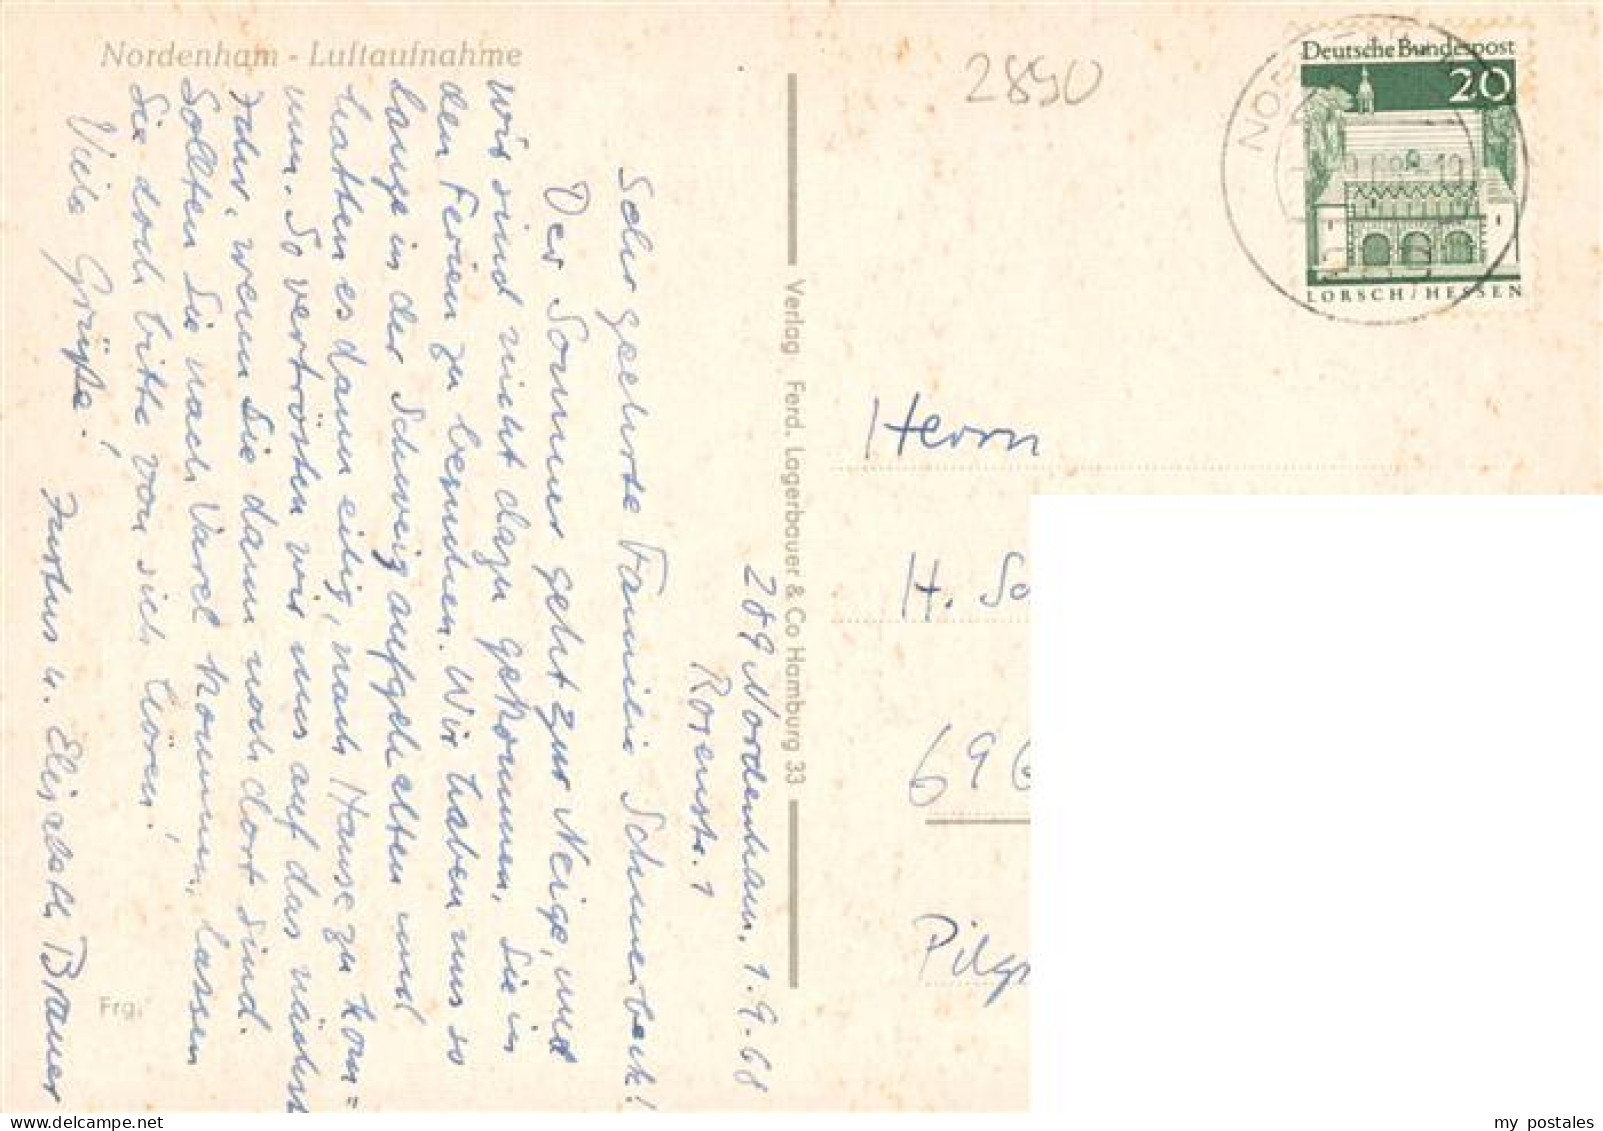 Nordenham - Luftaufnahme
2890
Deutsche Bundespost
20
LORSCH/HESSEN
289 Nordenham, 1.9.68
Rosenstr. 1
Sehr geehrte Familie Schmerbeck!
Der Sommer geht zur Neige, und
wir sind nicht dazu gekommen, Sie in
den Ferien zu besuchen. Wir haben uns so
lange in der Schweiz aufgehalten und
hatten es dann eilig, nach Hause zu kom=
men. So vertrösten wir uns auf das nächste
Jahr, wenn Sie dann noch dort sind.
Sollten Sie nach Varel kommen, lassen
Sie doch bitte von sich hören!
Viele Grüße!
Justus u. Elisabeth Brauer
Verlag Ferd. Lagerbauer & Co Hamburg 33
Herrn
H. Sc
696
Pilgr
Frg.
my postales